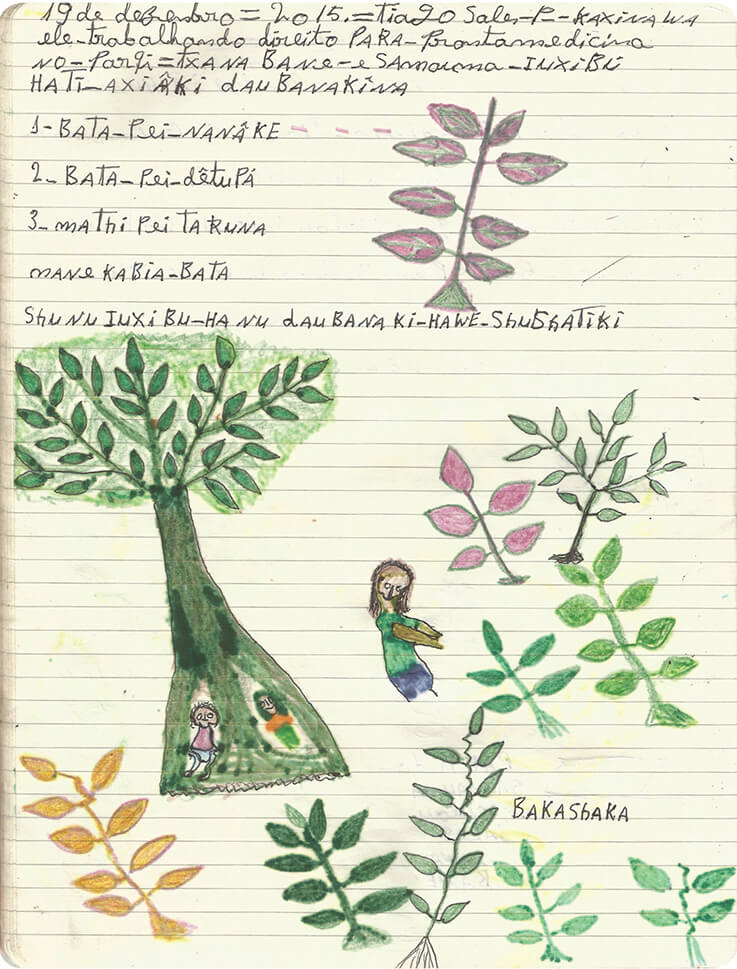 19 de dezembro = 2015. = Tiago Sales-P-KAXINAWA
ele-trabalhando direito PARA-Prontamedicina
NO-Parqi=TXANA BANE-e SAmauma-IUXIBU
HATI-AXIÂKI dAUBANAKINA
1-BATA-Pei-NANÂKE
2-BATA-Pei-dêtuPÁ
3-mAThi Pei TARUNA
mANe KABIA-BATA
ShuNu IUXiBU-HANu dAUBANAKi-HAWE-ShuShATiKi
BAKAShAKA